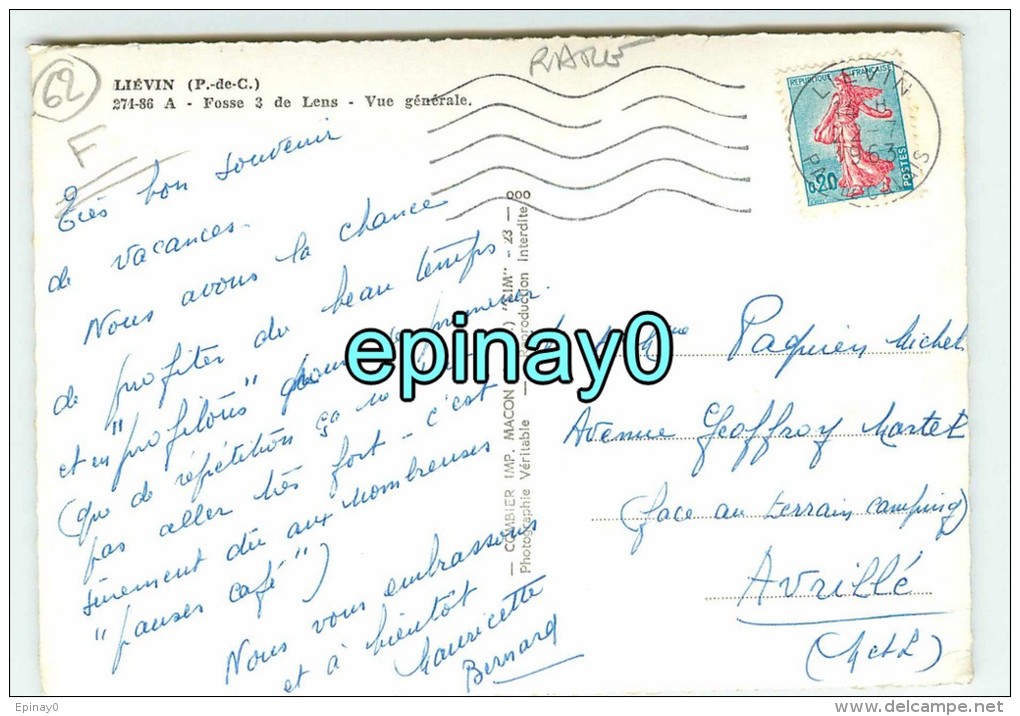 62
F
RARE
LIÉVIN (P.-de-C.)
274-86 A - Fosse 3 de Lens - Vue générale.
Très bon souvenir
de vacances.
Nous avons la chance
de profiter du beau temps
et en "profitons" pour se promener.
(que de répétition ça ne
pas aller très fort - c'est
sûrement dû aux nombreuses
"pauses café")
Nous vous embrassons
et à bientôt
Mauricette
Bernard
— COMBIER IMP. MACON "CIM" - 23 — 000
Photographie Véritable — Reproduction Interdite
REPUBLIQUE FRANÇAISE
0,20
POSTES
LIEVIN
1963
PAS DE CALAIS
Mme Paquien Michel
Avenue Geoffroy Martel
(face au terrain camping)
AVRILLÉ
(M et L)
epinay0
Epinay0
delcampe.net